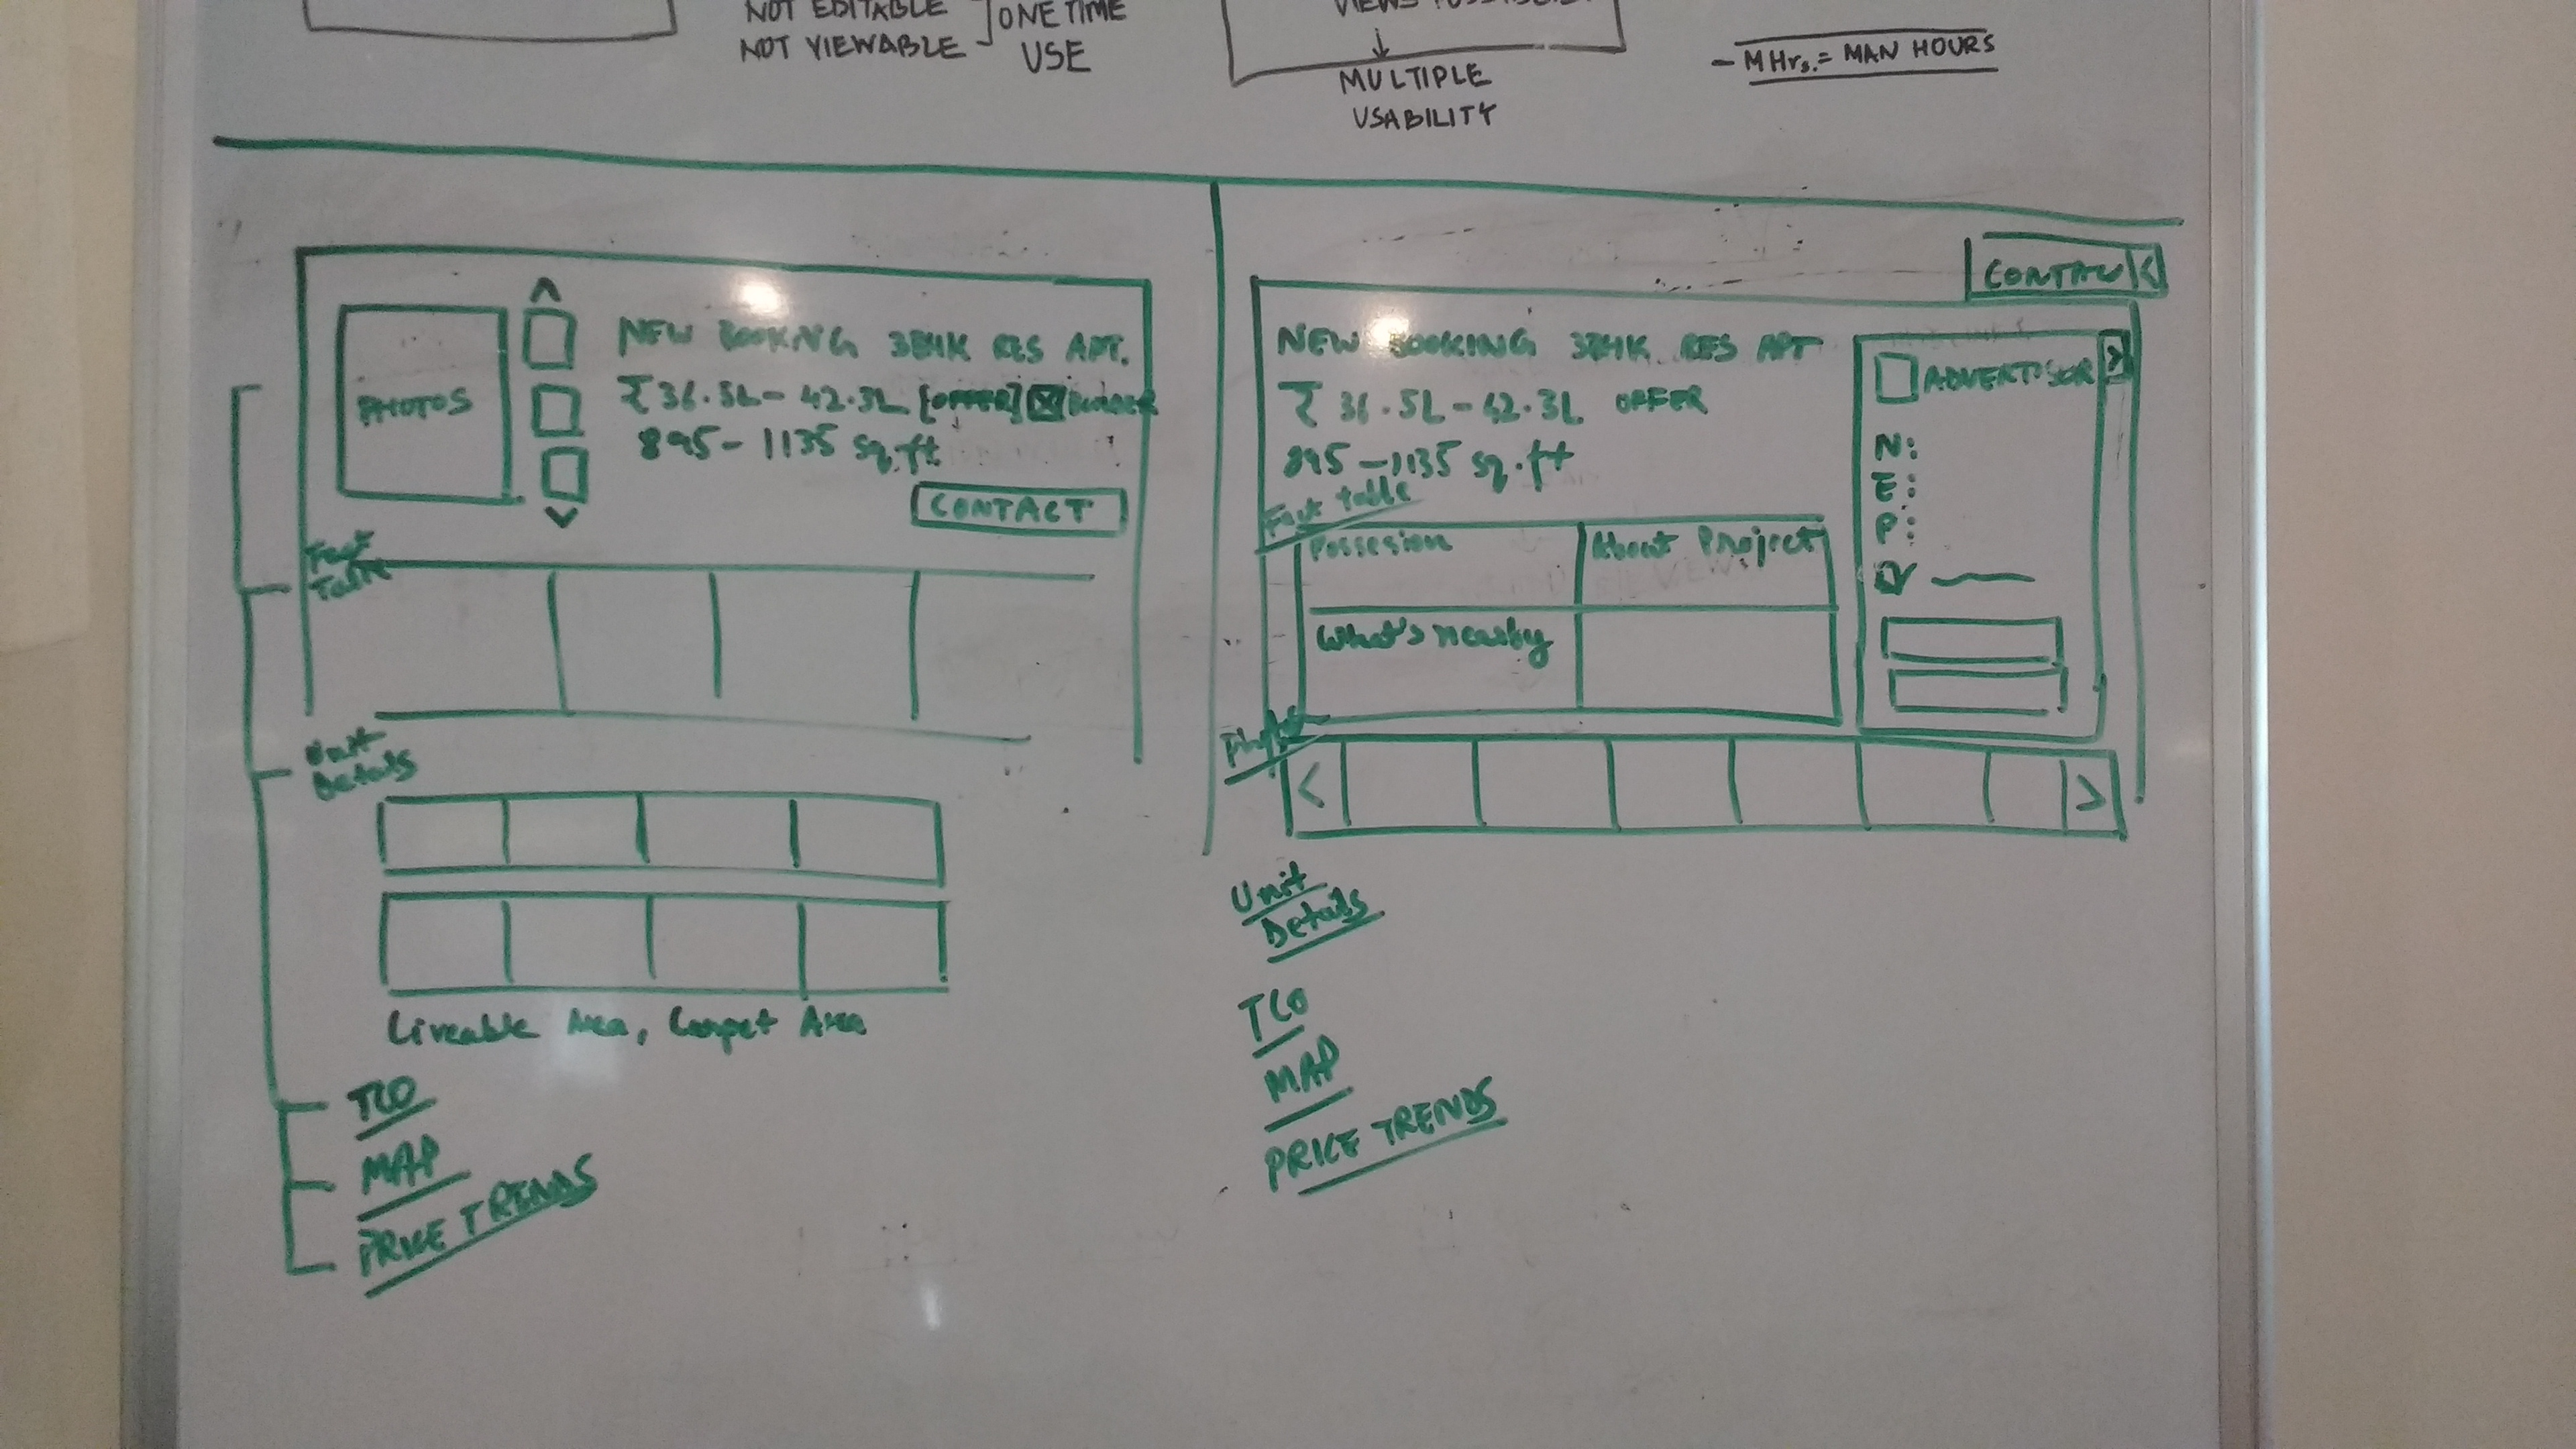 NOT EDITABLE
NOT VIEWABLE
ONE TIME
USE
MULTIPLE
USABILITY
- MHrs. = MAN HOURS
PHOTOS
^
NEW BOOKING 3BHK RES APT.
₹ 36.5L - 42.3L [OFFER]
895 - 1135 sq.ft
CONTACT
Fact
Table
Unit
Details
Liveable Area, Carpet Area
TCO
MAP
PRICE TRENDS
CONTAC <
NEW BOOKING 3BHK RES APT
₹ 36.5L - 42.3L OFFER
895 - 1135 sq.ft
Fact table
Possesion
About Project
What's nearby
ADVERTISER >
N:
E:
P:
Photos
< >
Unit
Details
TCO
MAP
PRICE TRENDS